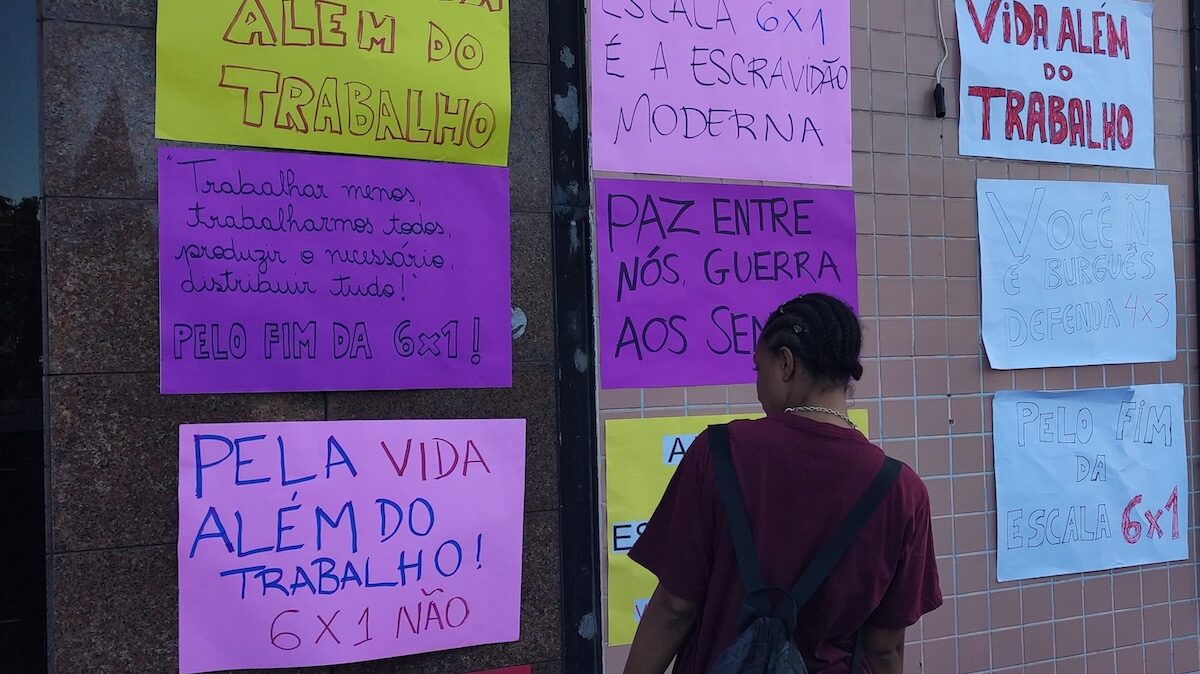 ALÉM DO
TRABALHO
"Trabalhar menos,
trabalharmos todos,
produzir o necessário,
distribuir tudo!"
PELO FIM DA 6x1!
PELA VIDA
ALÉM DO
TRABALHO!
6X1 NÃO
ESCALA 6X1
É A ESCRAVIDÃO
MODERNA
PAZ ENTRE
NÓS, GUERRA
AOS
A
ES
VIDA ALÉM
DO
TRABALHO
VOCÊ Ñ
É BURGUÊS
DEFENDA 4x3
PELO FIM
DA
ESCALA 6x1